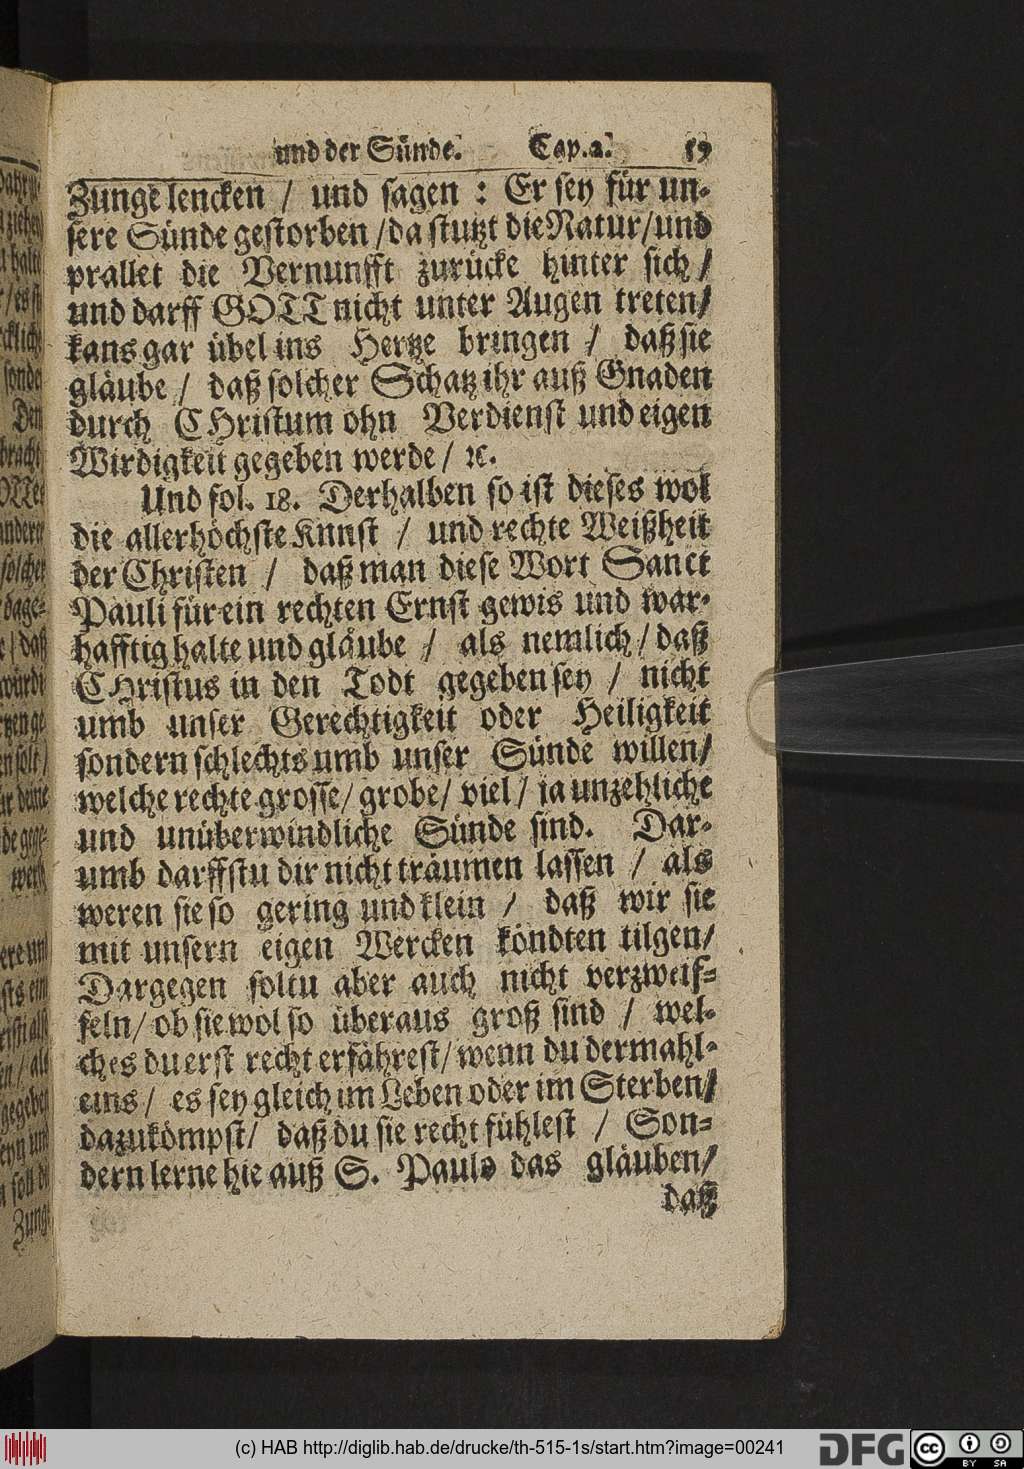 und der Sünde. Cap.2. 59
Zunge lencken / und sagen : Er sey für un-
sere Sünde gestorben / da stutzt die Natur / und
prallet die Vernunfft zurücke hinter sich /
und darff GOTT nicht unter Augen treten /
kans gar übel ins Hertze bringen / daß sie
gläube / daß solcher Schatz ihr auß Gnaden
durch CHristum ohn Verdienst und eigen
Wirdigkeit gegeben werde / ꝛc.
Und fol. 18. Derhalben so ist dieses wol
die allerhöchste Knnst / und rechte Weißheit
der Christen / daß man diese Wort Sanct
Pauli für ein rechten Ernst gewis und war-
hafftig halte und gläube / als nemlich / daß
CHristus in den Todt gegeben sey / nicht
umb unser Gerechtigkeit oder Heiligkeit
sondern schlechts umb unser Sünde willen /
welche rechte grosse / grobe / viel / ja unzehliche
und unüberwindliche Sünde sind. Dar-
umb darffstu dir nicht träumen lassen / als
weren sie so gering und klein / daß wir sie
mit unsern eigen Wercken köndten tilgen /
Dargegen soltu aber auch nicht verzweif-
feln / ob sie wol so überaus groß sind / wel-
ches du erst recht erfährest / wenn du dermahl-
eins / es sey gleich im Leben oder im Sterben /
dazu kömpst / daß du sie recht fühlest / Son-
dern lerne hie auß S. Paulo das gläuben /
daß
(c) HAB http://diglib.hab.de/drucke/th-515-1s/start.htm?image=00241
DFG
cc BY SA